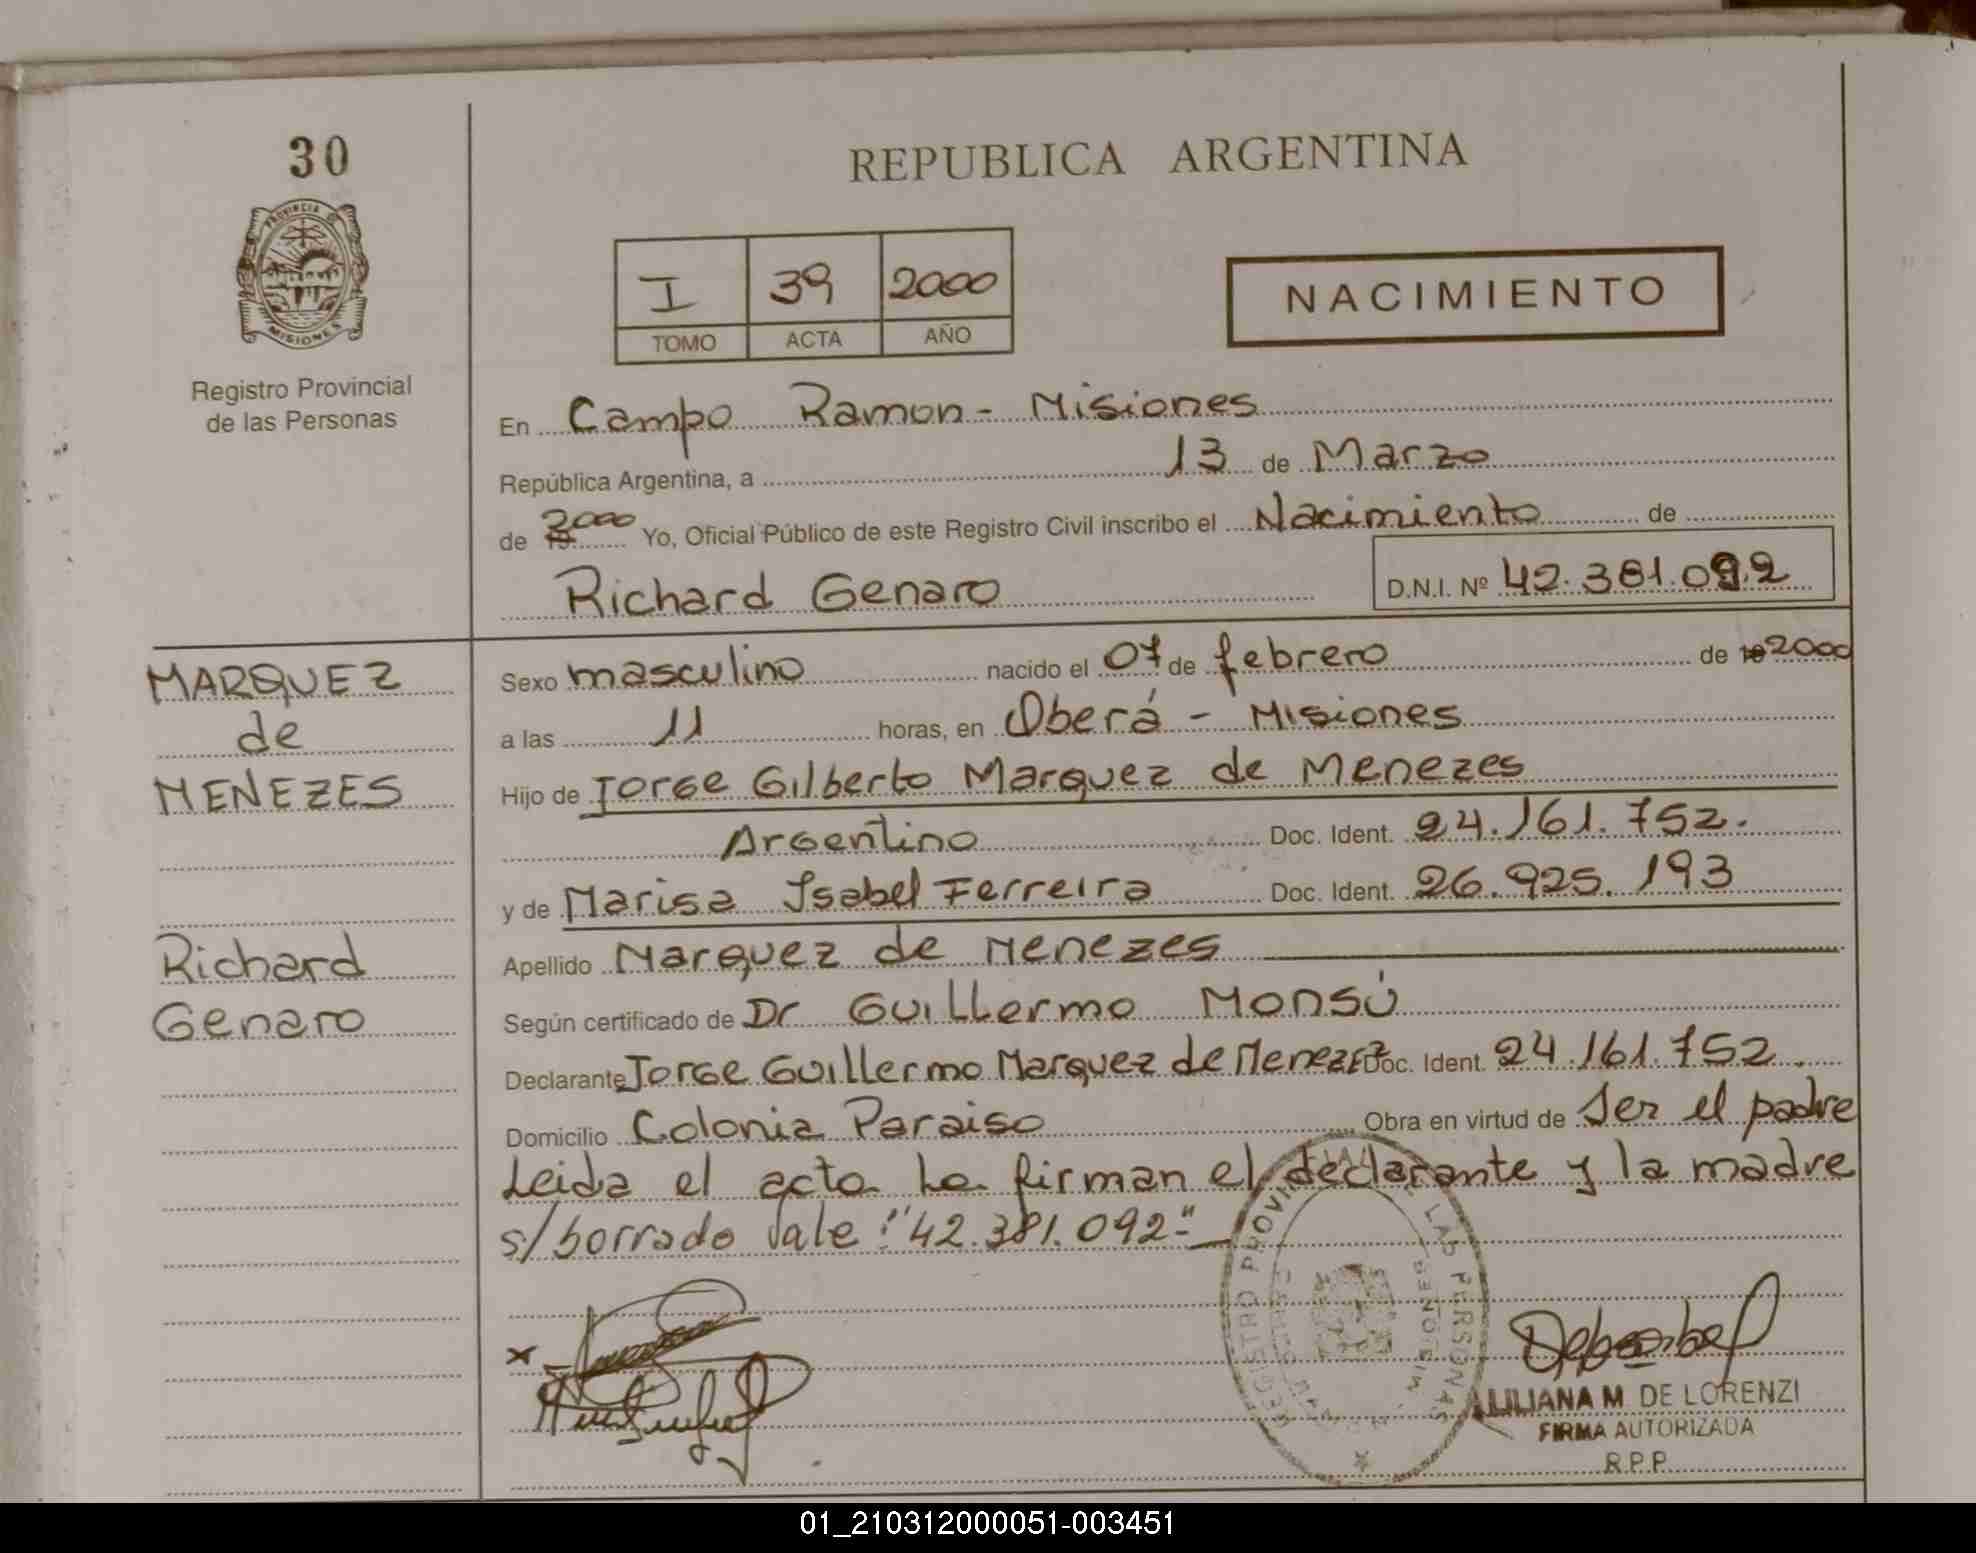 30
REPUBLICA ARGENTINA
PROVINCIA DE
MISIONES
Registro Provincial
de las Personas
I 39 2000
TOMO ACTA AÑO
NACIMIENTO
En Campo Ramon - Misiones
República Argentina, a 13 de Marzo
de 19 2000 Yo, Oficial Público de este Registro Civil inscribo el Nacimiento de
Richard Genaro D.N.I. Nº 42.381.092
MARQUEZ
de
MENEZES
Richard
Genaro
Sexo masculino nacido el 07 de febrero de 19 2000
a las 11 horas, en Oberá - Misiones
Hijo de Jorge Gilberto Marquez de Menezes
Argentino Doc. Ident. 24.161.752.
y de Marisa Isabel Ferreira Doc. Ident. 26.925.193
Apellido Marquez de Menezes
Según certificado de Dr Guillermo Monsú
Declarante Jorge Guillermo Marquez de Menezez Doc. Ident. 24.161.752.
Domicilio Colonia Paraiso Obra en virtud de Ser el padre
Leida el acta la firman el declarante y la madre
s/borrado Vale: "42.381.092"-
REGISTRO PROVINCIAL DE LAS PERSONAS
MISIONES
LILIANA M. DE LORENZI
FIRMA AUTORIZADA
R.P.P.
01_210312000051-003451